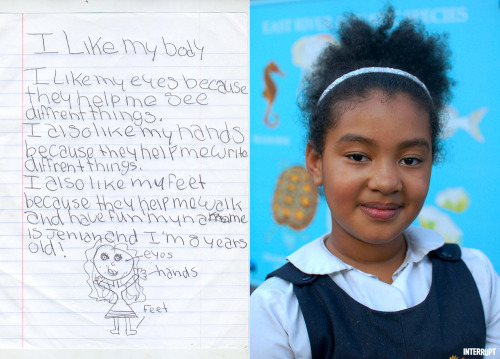 I Like my body
I Like my eyes because
they help me see
diffrent things.
I also like my hands
because they help me write
diffrent things.
I also like my feet
because they help me walk
and have fun! my name
is Jeniah and I'm 8 years
old!
eyes
hands
Feet
EAST RIVER SPECIES
INTERRUPT